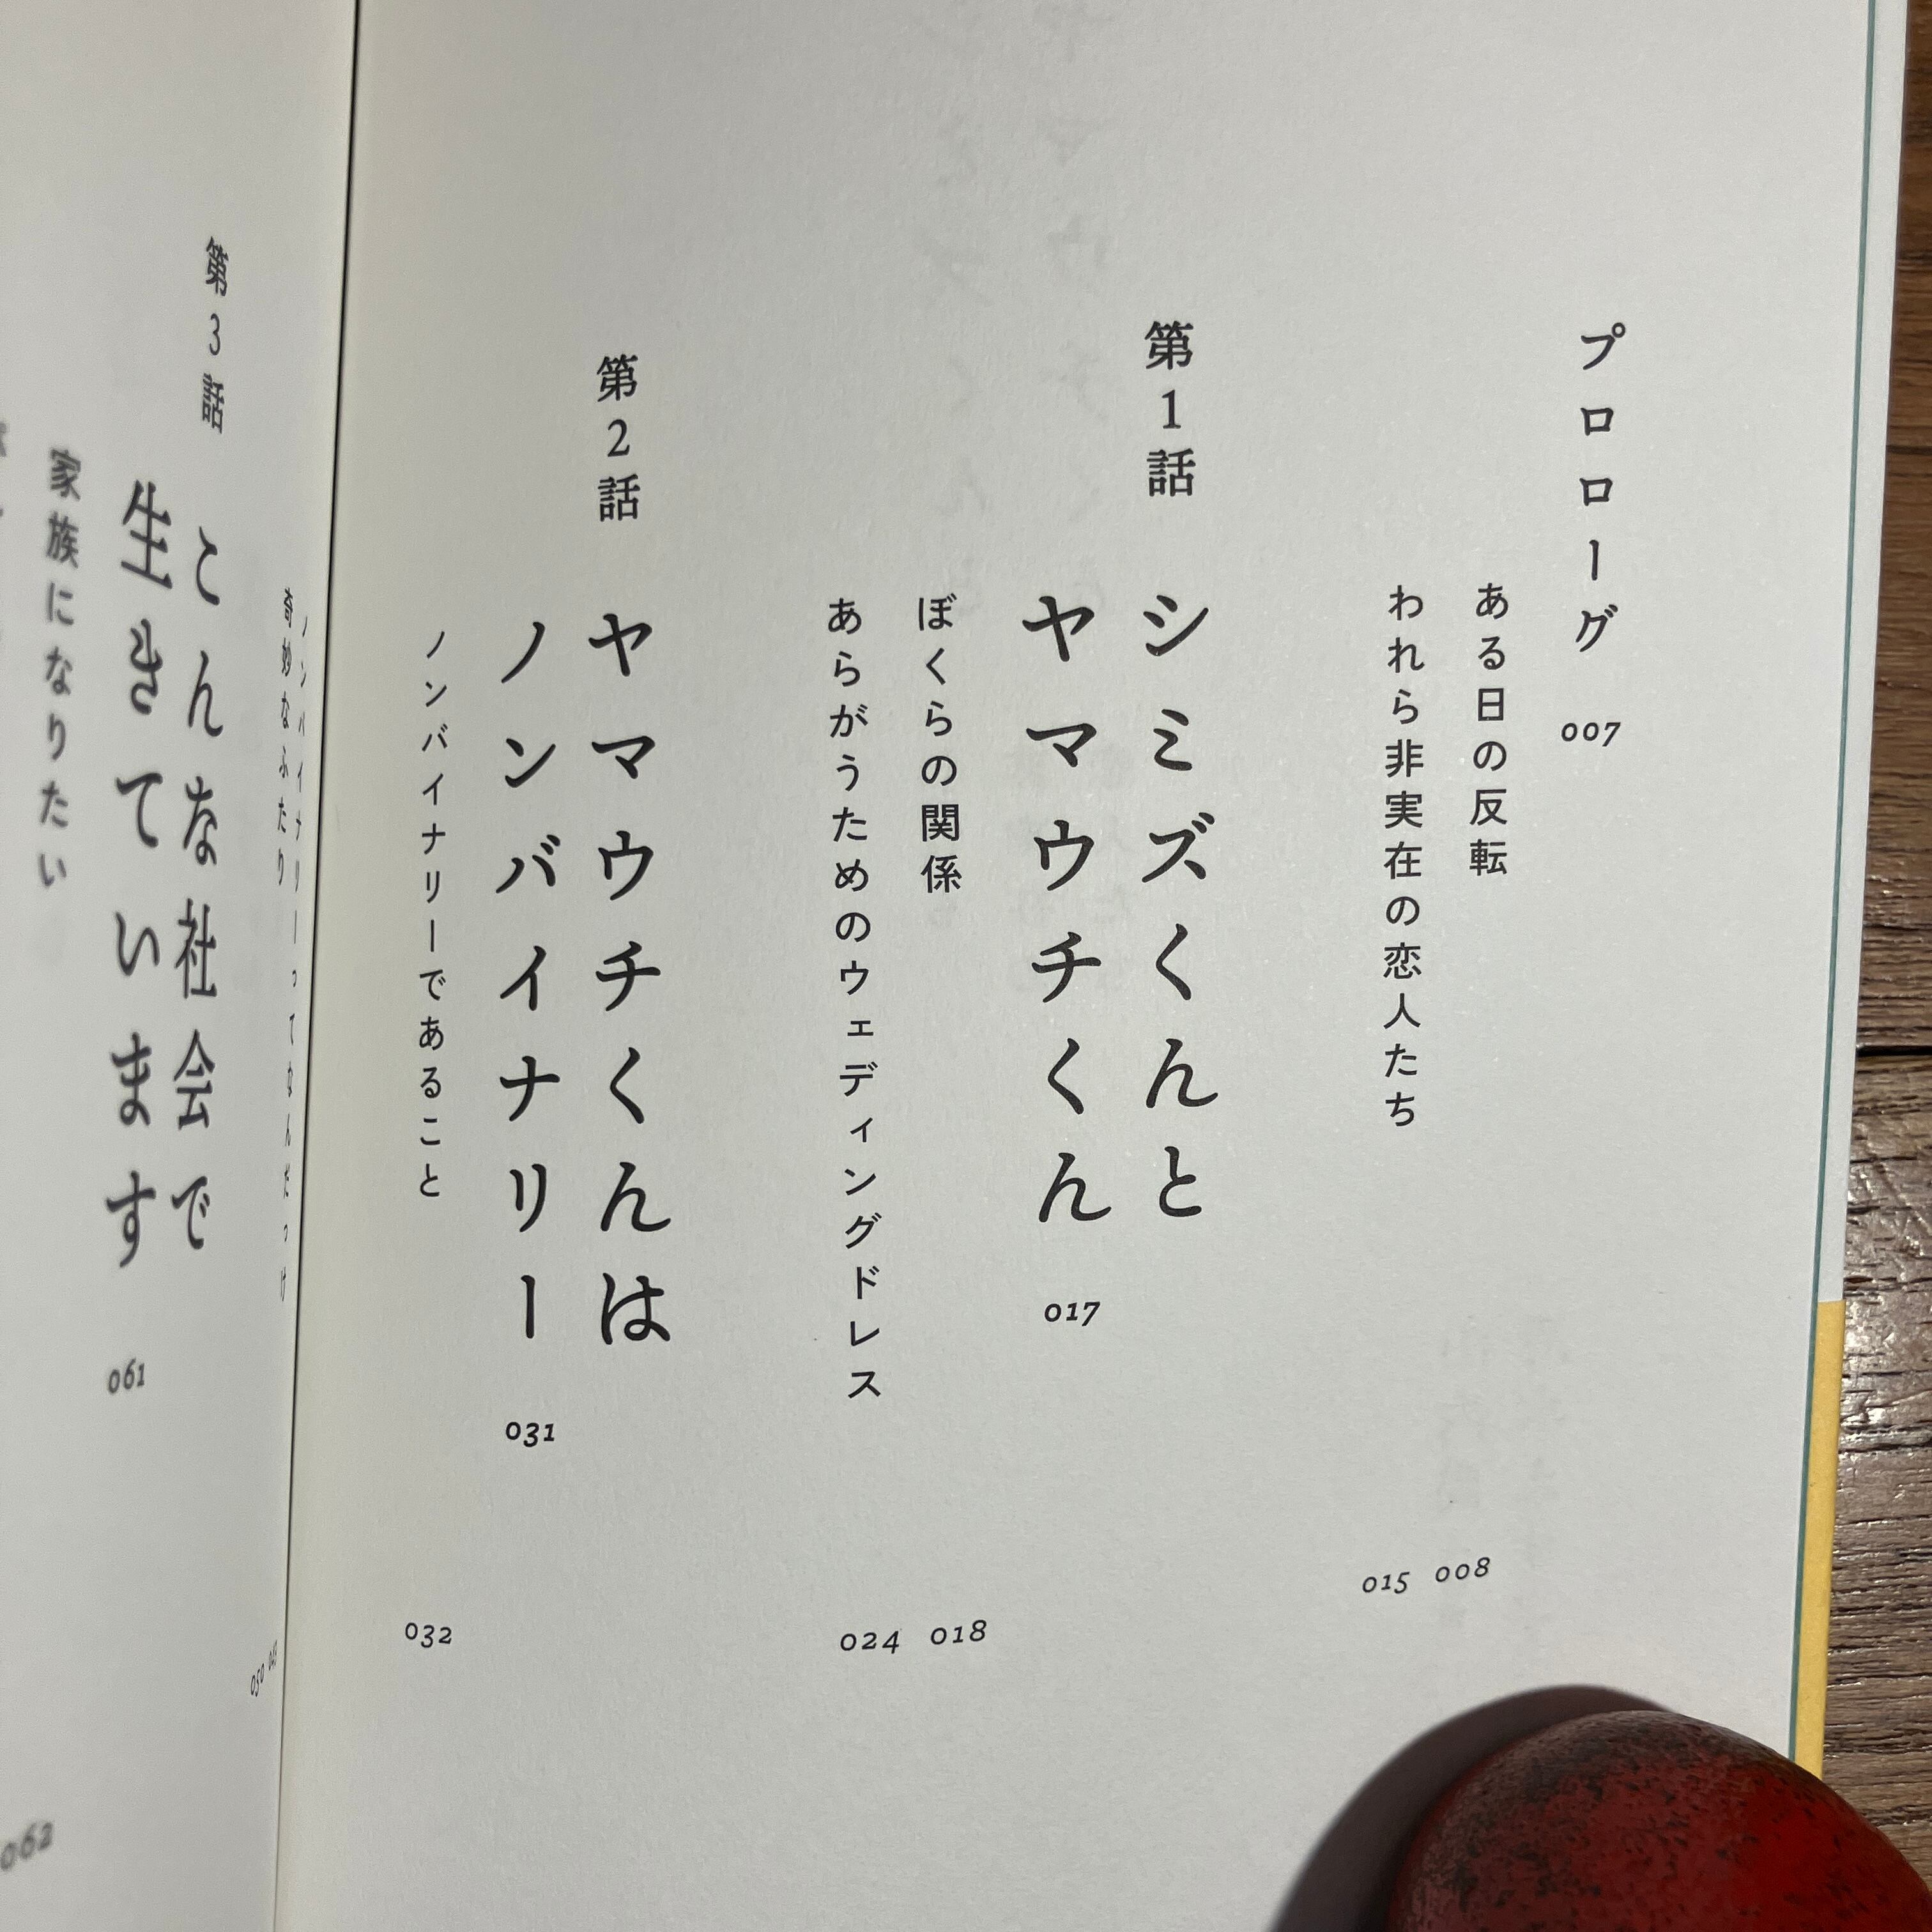 プロローグ 007
ある日の反転 008
われら非実在の恋人たち 015
第1話 シミズくんと
ヤマウチくん 017
ぼくらの関係 018
あらがうためのウェディングドレス 024
第2話 ヤマウチくんは
ノンバイナリー 031
ノンバイナリーであること 032
ノンバイナリーってなんだっけ
奇妙なふたり 050
第3話 こんな社会で
生きています 061
家族になりたい 062